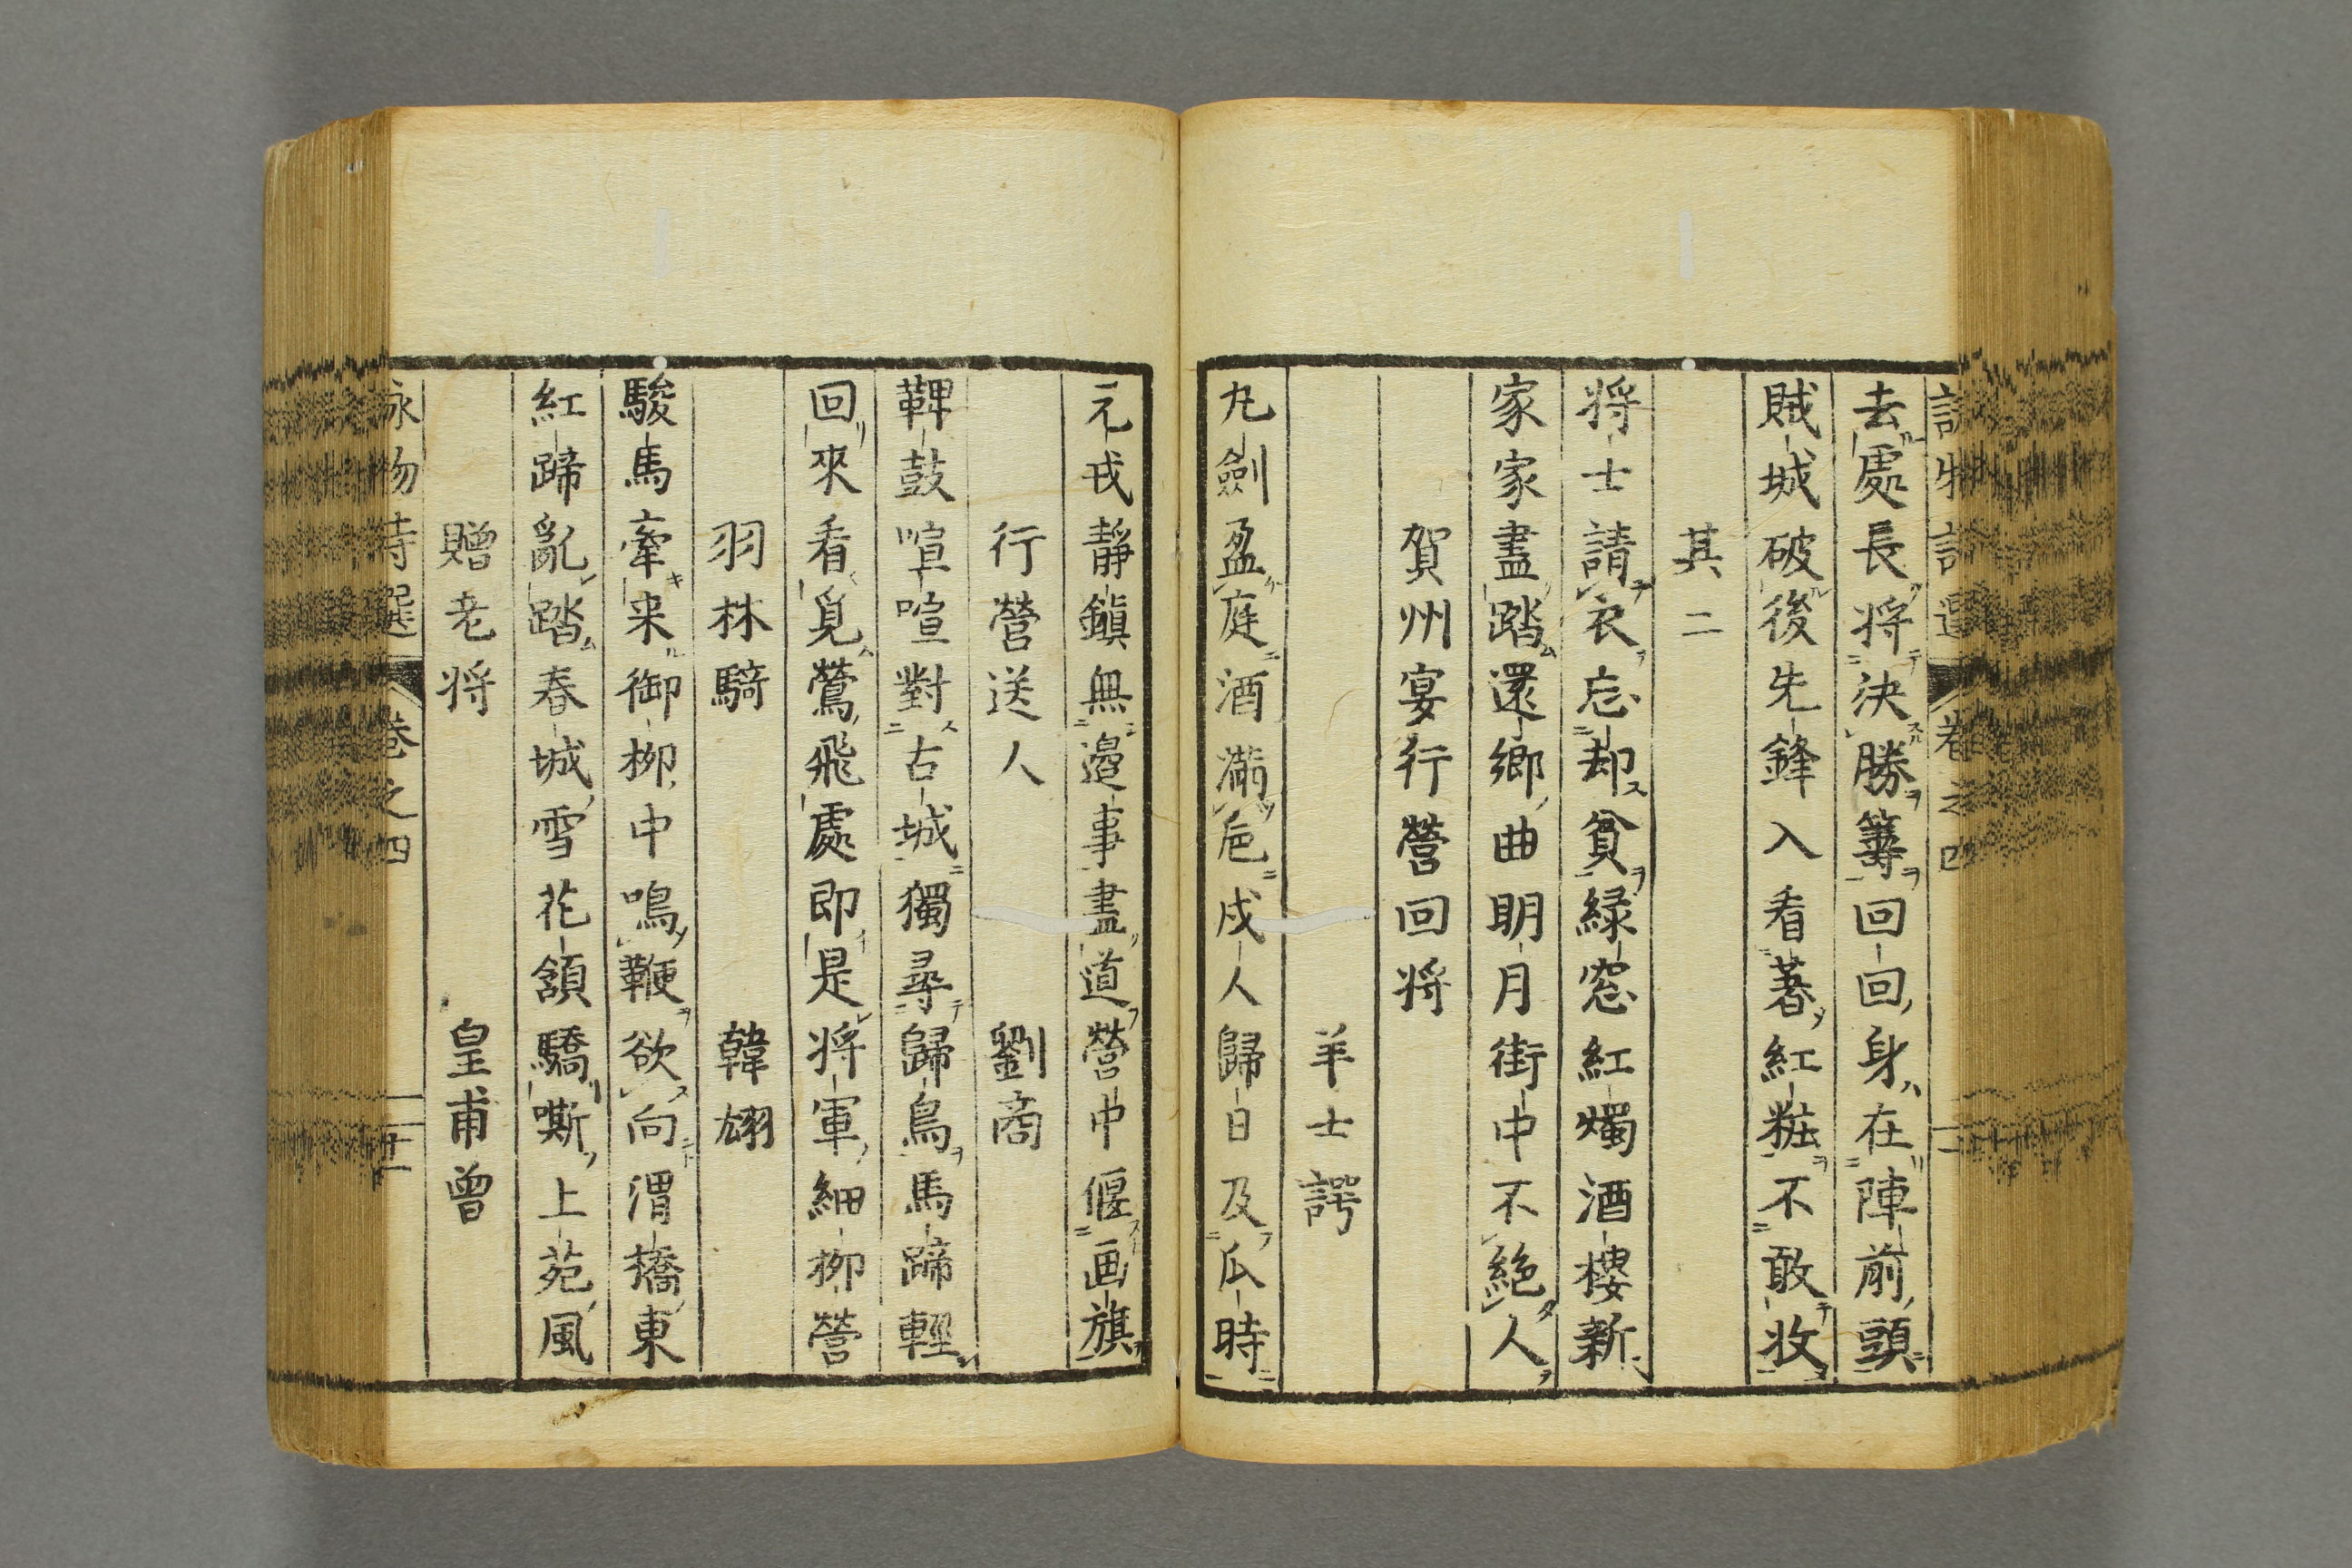 去處長將決勝籌回回身在陣前頭
賊城破後先鋒入看著紅粧不敢收
其二
將士請衣忘却貧緑窓紅燭酒樓新
家家盡踏還鄉曲明月街中不絶人
賀州宴行營回将
羊士諤
九劍盈庭酒滿巵戍人歸日及瓜時
元戎靜鎭無邉事盡道營中偃画旗
行營送人 劉商
鞞鼓喧喧對古城獨尋歸鳥馬蹄輕
回來看覓鶯飛處即是将軍細柳營
羽林騎 韓翃
駿馬牽来御柳中鳴鞭欲向渭橋東
紅蹄亂踏春城雪花頷驕嘶上苑風
贈老将 皇甫曾
詠物詩選 卷之四 二十一